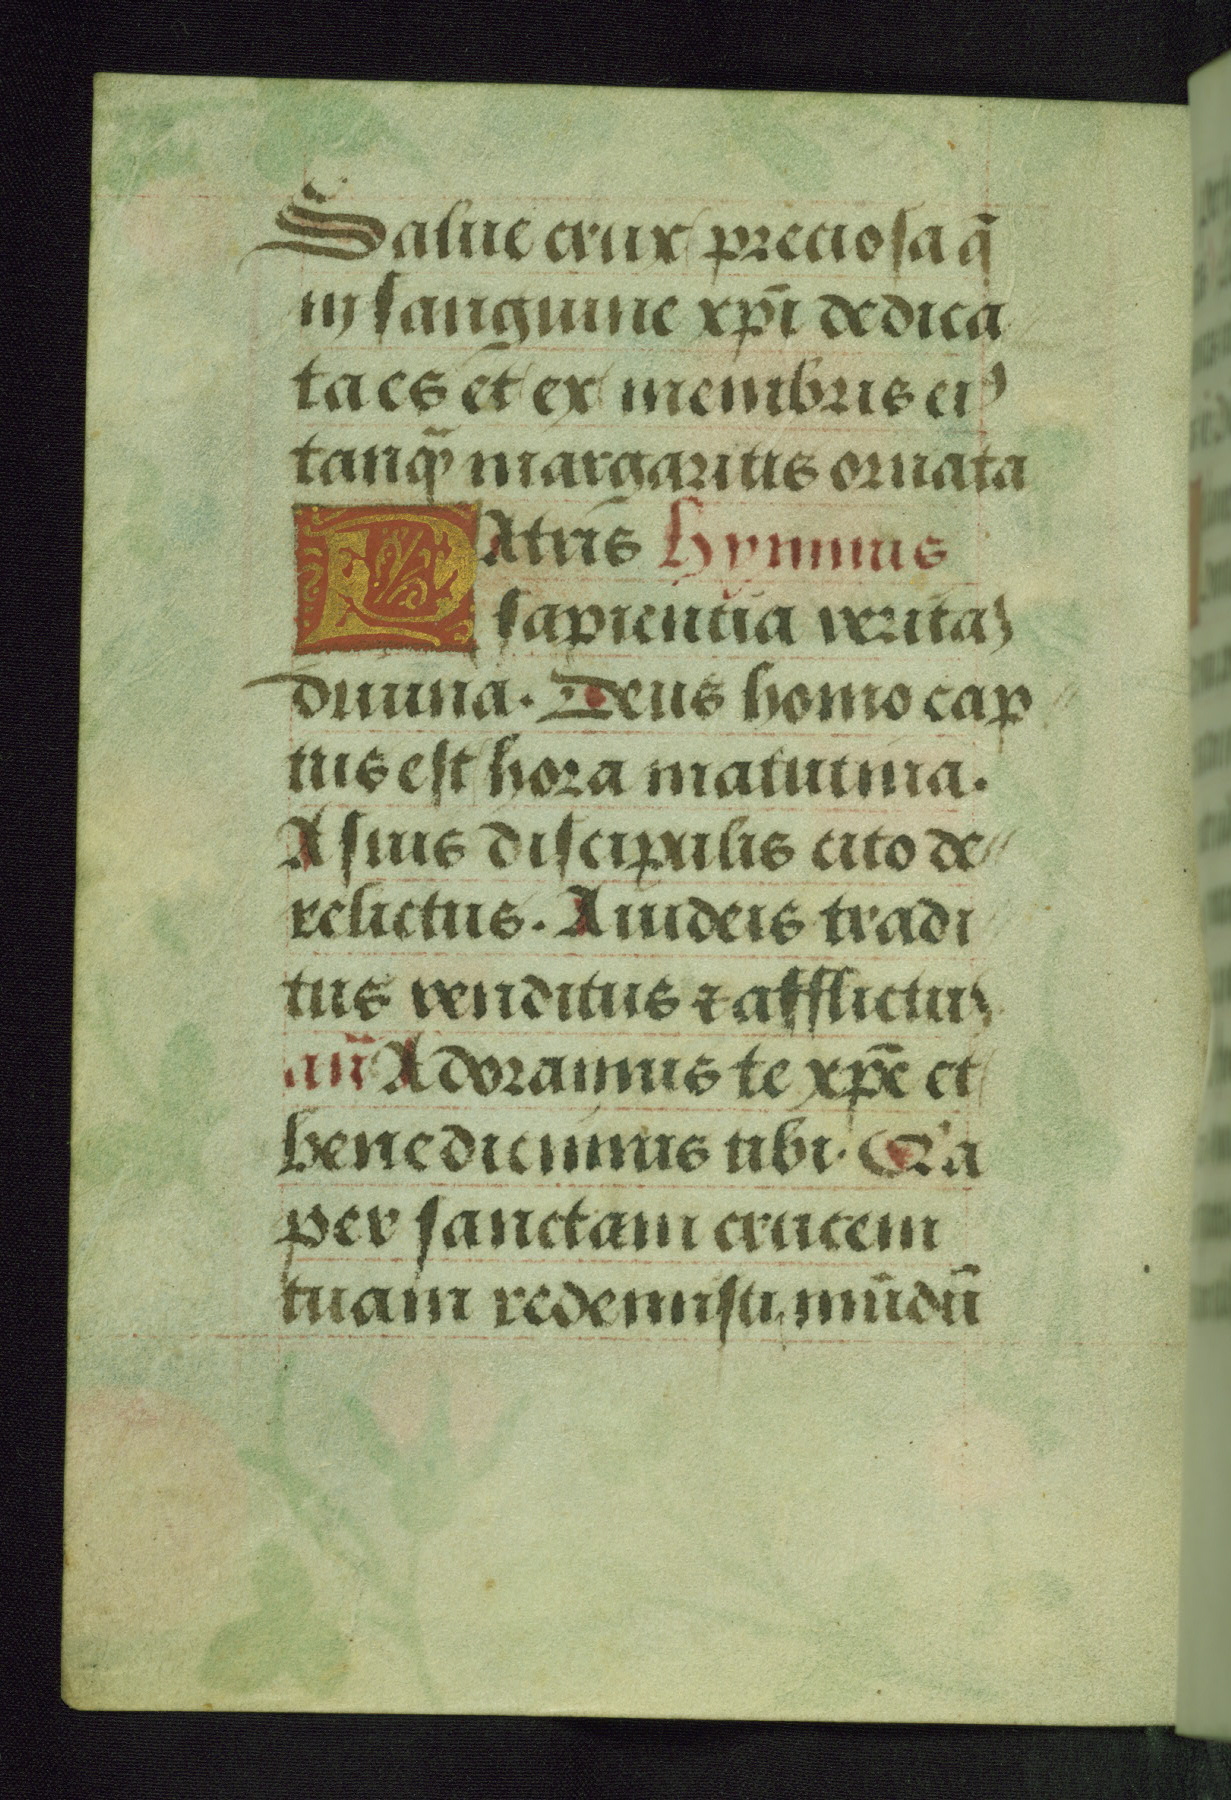 Salue crux preciosa q̄
in sanguine xp̄i dedica
ta es et ex membris eiꝰ
tanq̄ margaritis ornata
PAtris Hymnus
sapientia veritas
diuina. Deus homo cap
tus est hora matutina.
A suis discipulis cito de
relictus. A iudeis tradi
tus venditus ⁊ afflictus
an̄ Adoramus te xp̄e et
benedicimus tibi. Q'a
per sanctam crucem
tuam redemisti mūdū